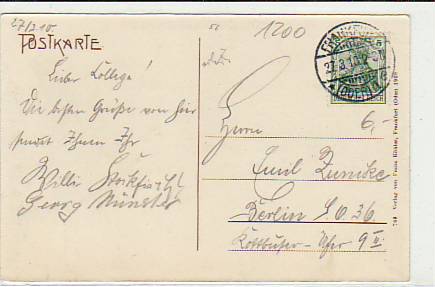 27/3 10.
1200
POSTKARTE
FRANKFURT
27.3.10.
(ODER)
Lieber Kollege!
Die besten Grüße von hier
sendet Ihnen Ihr
Willi Stockfisch
Georg Münster
6,-
Herrn
Emil Zumcke
Berlin S.O. 36
Kottbuser-Ufer 9 II
Verlag von Franz Köhler, Frankfurt (Oder) 19